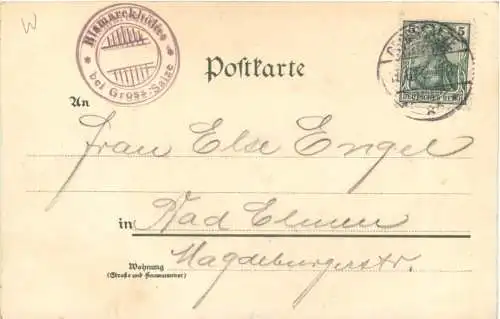 W
Bismarckhöhe
bei Gross-Salze
Postkarte
5 5
DEUTSCHES REICH
An
Frau Else Engel
in Bad Elmen
Magdeburgerstr.
Wohnung
(Straße und Hausnummer)